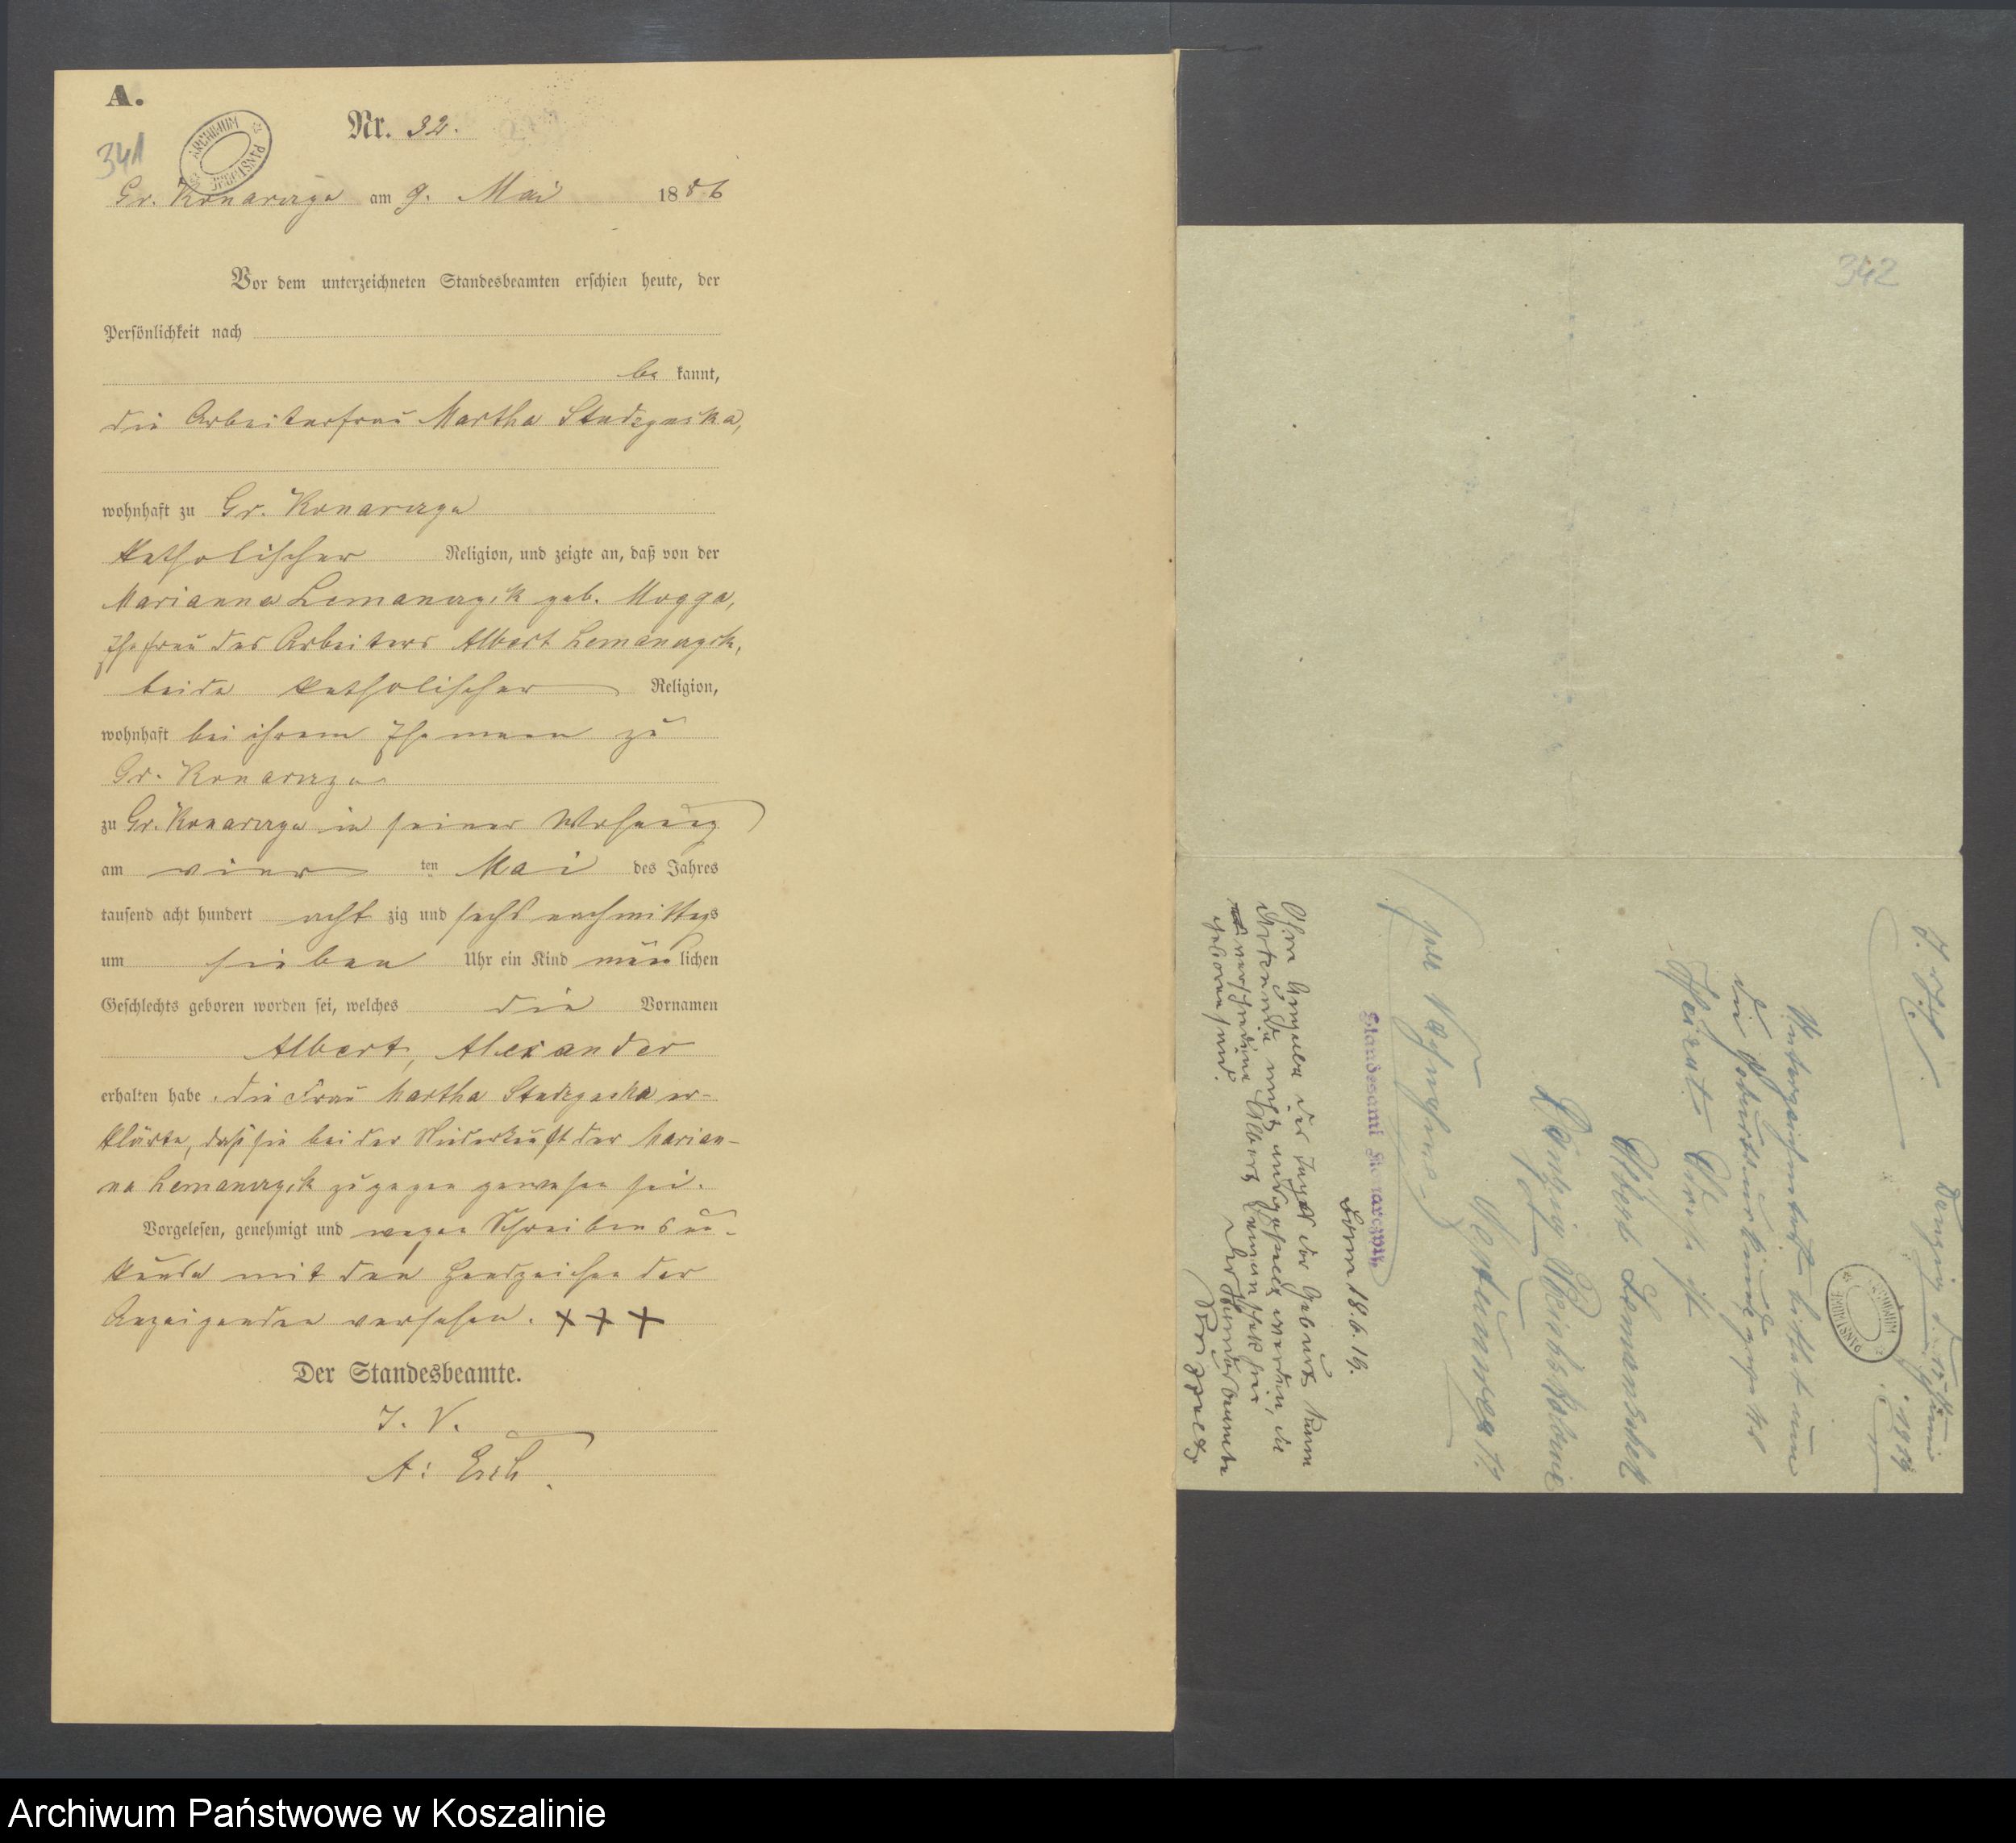 A.
Nr. 32.
341
ARCHIWUM PAŃSTWOWE
Gr. Konarczyn am 9. Mai 1886
Vor dem unterzeichneten Standesbeamten erschien heute, der
Persönlichkeit nach
be kannt,
die Arbeiterfrau Martha Studzynska,
wohnhaft zu Gr. Konarczyn
katholischer Religion, und zeigte an, daß von der
Marianna Lemanczyk geb. Mogga,
Ehefrau des Arbeiters Albert Lemanczyk,
beide katholischer Religion,
wohnhaft bei ihrem Ehemann zu
Gr. Konarczyn
zu Gr. Konarczyn in seiner Wohnung
am vier ten Mai des Jahres
tausend acht hundert acht zig und sechs nachmittags
um sieben Uhr ein Kind männlichen
Geschlechts geboren worden sei, welches die Vornamen
Albert, Alexander
erhalten habe. die Frau Martha Studzynska er-
klärte, daß sie bei der Niederkunft der Marian-
na Lemanczyk zugegen gewesen sei.
Vorgelesen, genehmigt und wegen Schreibensun-
kunde mit den Handzeichen der
Anzeigenden versehen. + + +
Der Standesbeamte.
I. V.
A:
342
Danzig d.
Unterzeichneter bittet um
die Geburtsurkunde
Heirat
Albert Lemanczyk
Danzig
Westpreußen
Standesamt Konarczyn
den 18.6.19.
Ohne Angabe der Tages der Geburt kann
Urkunde nicht ausgestellt werden, da
verschiedene Albert Lemanczyk hier
geboren sind.
Der Standesbeamte
ARCHIWUM PAŃSTWOWE
Archiwum Państwowe w Koszalinie